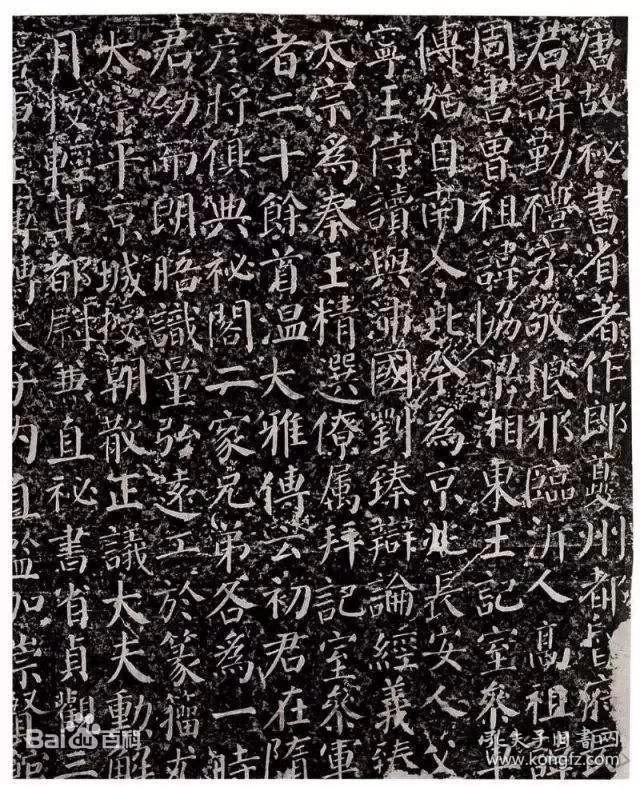 唐故祕書省著作郎夔州都督府
君諱勤禮字敬琅邪臨沂人高祖諱
周書曾祖諱協梁湘東王記室參軍
傳始自南入北今為京兆長安人父
寧王侍讀與沛國劉臻辯論經義臻
太宗為秦王精選僚属拜記室參軍
者二十餘首温大雅傳云初君在隋
彦將俱典祕閣二家兄弟各為一時
君幼而朗晤識量弘遠工於篆籀尤
太宗平京城授朝散正議大夫勳解
月授輕車都尉兼直祕書省貞觀三
轉太子內直監加崇賢館
Bai百科
孔夫子旧书网
www.kongfz.com